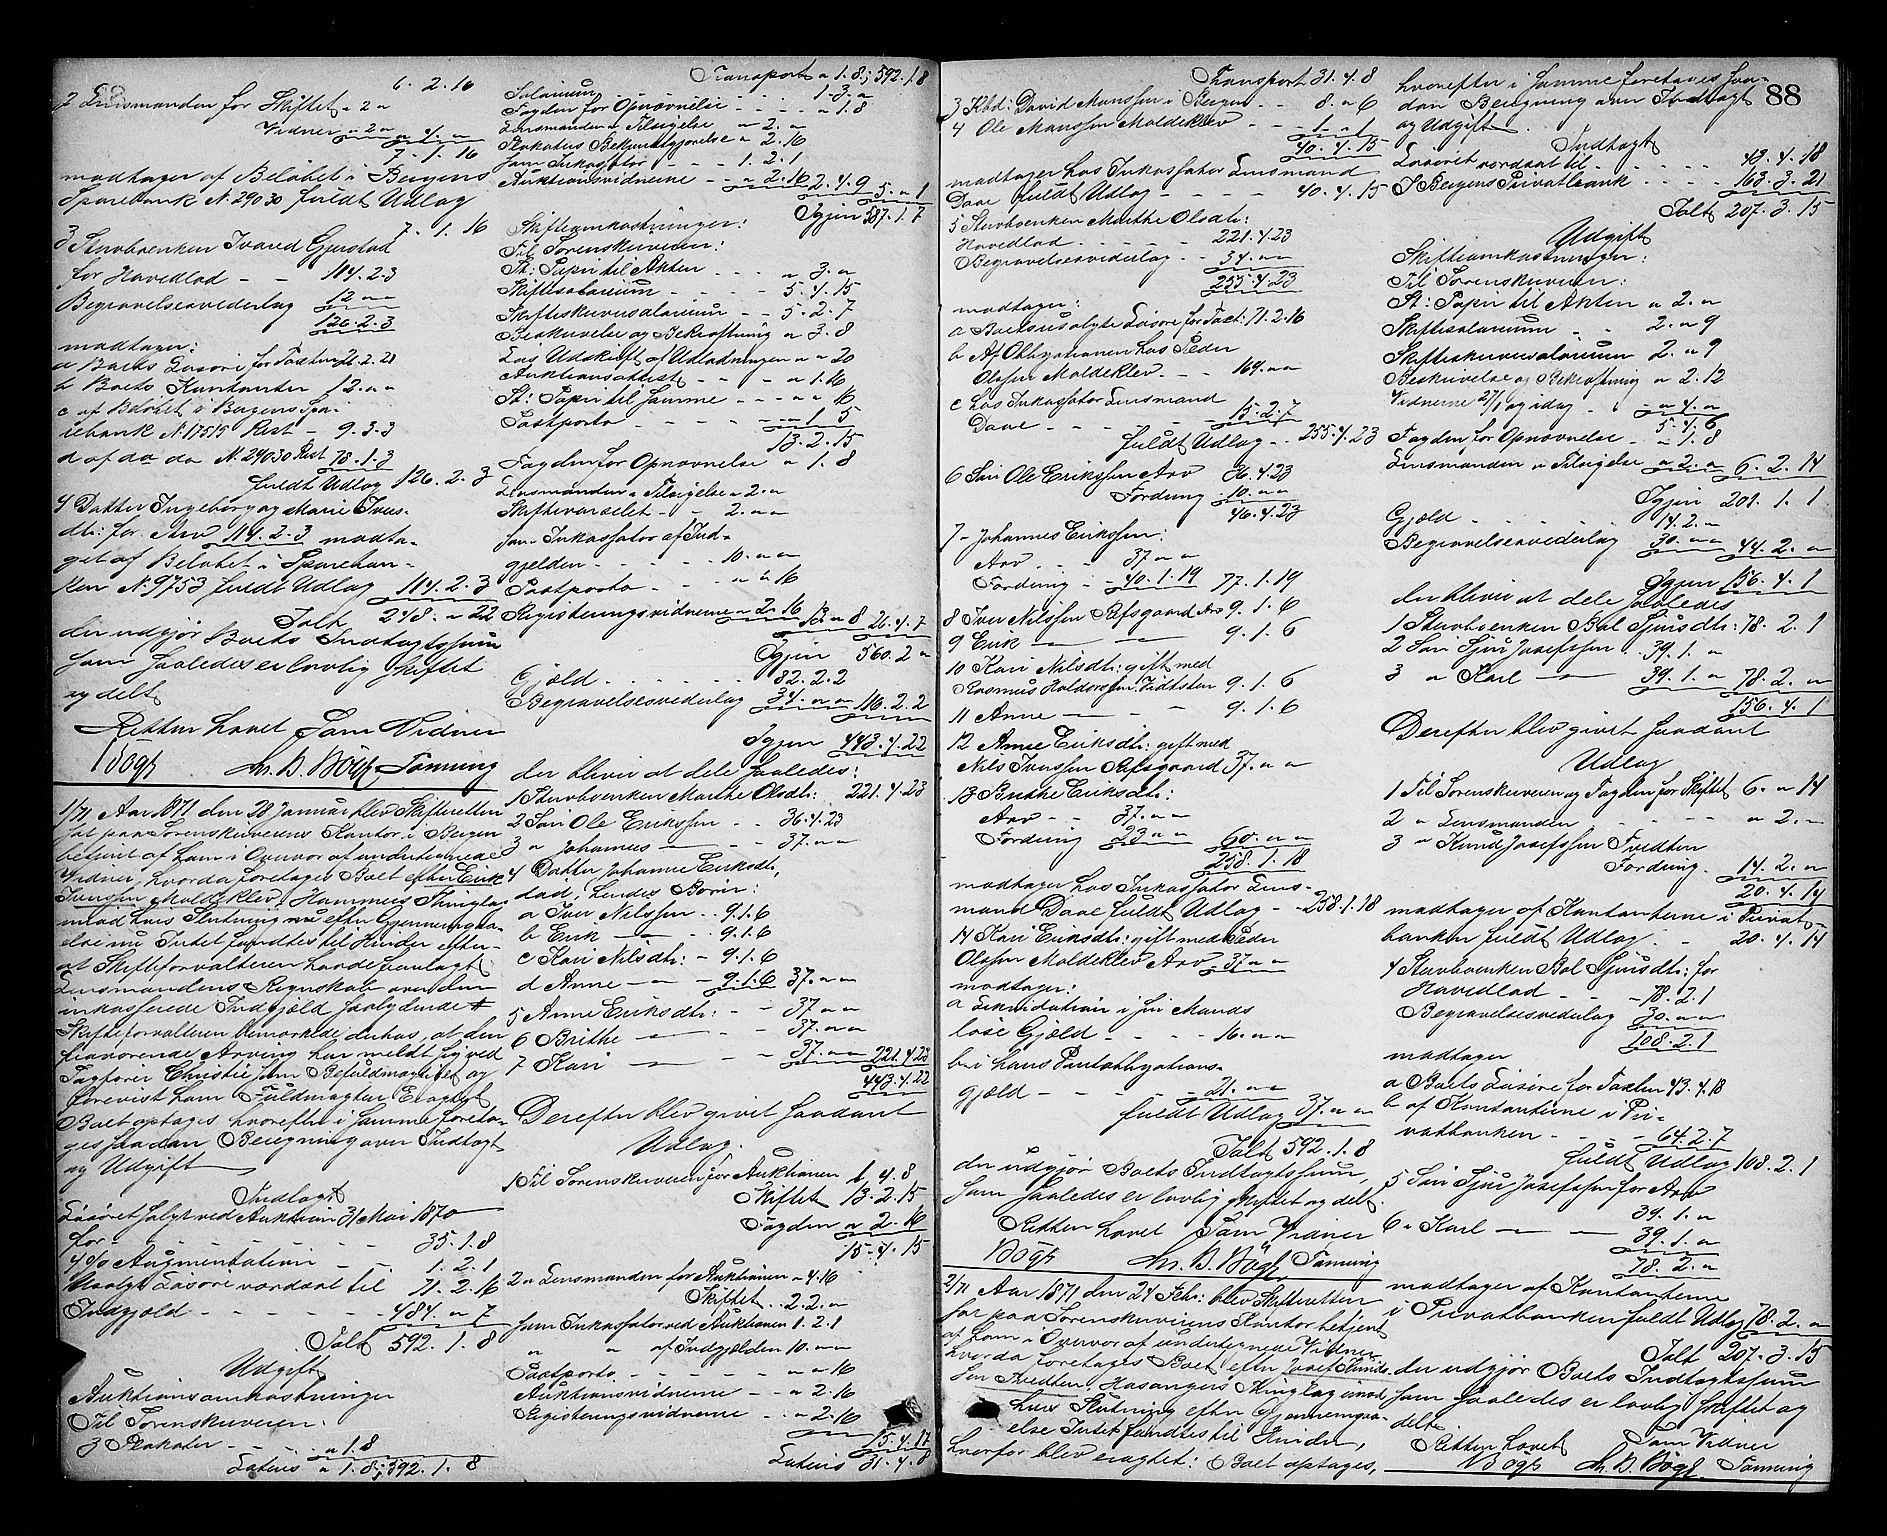 6. 2. 16
2 Lensmanden for Skiftet " 2 "
Vidner " 2 " " 4. "
7. 1. 16
modtager af Beløbet i Bergens
Sparebank N. 29030 fuldt Udlag
7. 1. 16
3 Stervboenken Gjerstad
for Hovedlod - - 114. 2. 3
Begravelsesvederlag 12 " "
126. 2. 3
modtager:
a Boets Løsøre for
b Boets Kontanter 12. " "
c af Beløbet i Bergens Spa-
rebank N. 17515 Rest - 9. 3. 3
d af do do N. 24030 Rest 78. 1. 3
fuldt Udlag 126. 2. 3
4 Datter Ingeborg og Marie Ivers-
dtr: for Arv 114. 2. 3 modta-
get af Beløbet i Spareban-
ken N. 9753 fuldt Udlag 114. 2. 3
Ialt 248. " 22
der udgjør Boets Indtægtssum
som saaledes er lovlig skiftet
og delt
Retten hævet Som Vidner
Bøgh Chr. B. Bøgh Tønning
1/71 Aar 1871 den 28 Januar blev Skifteretten
sat paa Sorenskriverens Kontor i Bergen
betjent af ham i Overvær af undertegnede
Vidner, hvorda foretages Boet efter Erik
Iverssen Moldeklev, Hammers Thinglag
imod hvis Slutning nu efter Gjennemgaa-
else nu Intet fandtes til Hinder efter-
at Skifteforvalteren havde fremlagt
Lensmandens Regnskab over den
inkasserede Indgjæld saalydende #
Skifteforvalteren bemærkede derhos, at den
fraværende Arving har meldt sig ved
Sagfører Christie som Befuldmægtiget og
forevist ham Fuldmagten Eragtet
Boet optages hvorefter i Samme foreta-
ges saadan Beregning over Indtægt
og Udgift
Indtægt
Løsøret solgt ved Auktion 31 Mai 1870
for - - - 35. 1. 8
4 % Augmentation - - 1. 2. 1
Usolgt Løsøre vurderet til 71. 2. 16
Indgjæld - - - - 484. " 7
Ialt 592. 1. 8
Udgift
Auktionsomkostninger
Til Sorenskriveren:
3 Plakater - - - " 1. 8
Lateris " 1. 8; 592. 1. 8
Transport " 1. 8; 592. 1. 8
Salarium - - - 1. 3. "
Fogden for Opnævnelse - - " 1. 8
Lensmanden " Tilsigelse " 2. "
Plakaters Bekjendtgjørelse " 2. 16
som Inkassator - - - 1. 2. 1
Auktionsvidnerne - - " 2. 16 2. 4. 9 5. " 1
Igjen 587. 1. 7
Skifteomkostninger:
Til Sorenskriveren:
St: Papir til Akten - - - " 3. "
Skiftesalarium - - - - 5. 4. 15
Skifteskriversalarium - - 5. 2. 7
Beskrivelse og Bekræftning " 3. 8
Løs Udskrift af Udlodningen " " 20
Auktionsattest - - - " 1. 16
St: Papir til Samme - - - " " 16
Postporto - - - - " 1 5
13. 2. 15
Fogden for Opnævnelse " 1. 8
Lensmanden " Tilsigelse " 2. "
Skiftevarselet - - 2. " "
som Inkassator af Ind-
gjælden - - - - - 10. " "
Postporto - - - " " 16
Registeringsvidnerne " 2. 16 13. " 8 26. 4. 7
Igjen 560. 2 "
Gjæld - - - - - 82. 2. 2
Begravelsesvederlag 34. " " 116. 2. 2
Igjen 443. 4. 22
der bliver at dele saaledes:
1 Stervboenken Marthe Olsdtr: 221. 4. 23
2 Søn Ole Erikssen - - 36. 4. 23
3 " Johannes - - 37. " "
4 Datter Johanne Eriksdtr,
død, hendes Børn:
a Iver Nilssen - - 9. 1. 6
b Erik - - 9. 1. 6
c Kari Nilsdtr: - 9. 1. 6
d Anne - - 9. 1. 6 37. " "
5 Anne Eriksdtr: - - 37. " "
6 Brithe - - 37. " "
7 Kari - - - 37. " " 221. 4. 23
443. 4. 22
Derefter blev givet saadant
Udlæg.
1 Til Sorenskriveren for Auktionen 1. 4. 8
Skiftet 13. 2. 15
Fogden " 2. 16
15. 4. 15
2 " Lensmanden for Auktionen " 4. 16
Skiftet - 2. 2. "
som Inkassator ved Auktionen 1. 2. 1
" " af Indgjælden 10. " "
Postporto - - - - - " " 16
Auktionsvidnerne - - " 2. 16
Registeringsvidnerne - - " 2. 16
15. 4. 17
Lateris 31. 4. 8
Transport 31. 4. 8
3 Kbd: David Monssen i Bergen - - 8. " 6
4 Ole Monssen Moldeklev - - " 1. " 1
40. 4. 15
modtager hos Inkassator Lensmand
Daae fuldt Udlag - - - 40. 4. 15
5 Stervboenken Marthe Olsdtr:
Hovedlod - - - - 221. 4. 23
Begravelsesvederlag - - 34. " "
255. 4. 23
modtager:
a Boets usolgte Løsøre for Taxt: 71. 2. 16
b Af Obligationen hos Peder
Olssen Moldeklev - - - 169. " "
c hos Inkassator Lensmand
Daae - - - - - 15. 2. 7
fuldt Udlag - - 255. 4. 23
6 Søn Ole Erikssen Arv 36. 4. 23
Fordring - 10. " "
46. 4. 23
7 - Johannes Erikssen:
Arv - - 37 " "
Fordring - - 40. 1. 19 77. 1. 19
8 Iver Nilssen Refsgaard Arv 9. 1. 6
9 Erik - - 9. 1. 6
10 Kari Nilsdtr: gift med
Rasmus Haldorssen Tvidtsten 9. 1. 6
11 Anne - - - 9. 1. 6
12 Anne Eriksdtr: gift med
Nils Iverssen Refsgaard 37. " "
13 Brithe Eriksdtr:
Arv - - 37. " "
Fordring 23 " " 60. " "
258. 1. 18
modtager hos Inkassator Lens-
mand Daae fuldt Udlag - - 258. 1. 18
14 Kari Eriksdtr: gift med Peder
Olssen Moldeklev Arv 37. " "
modtager:
a Likvidation i sin Mands
løse Gjæld - - - - 16. " "
b i hans Pantobligations-
gjæld - - - - 21. " "
fuldt Udlag 37. " "
Ialt 592. 1. 8
der udgjør Boets Indtægtssum,
som saaledes er lovlig skiftet og delt.
Retten hævet Som Vidner
Bøgh Chr. B. Bøgh Tønning
2/71 Aar 1871 den 24 Febr: blev Skifteretten
sat paa Sorenskriverens Kontor betjent
af ham i Overvær af undertegnede Vidner,
hvorda foretages Boet efter Josef
sen Tvedten, Hosangers Thinglag imod
hvis Slutning efter Gjennemgaa-
else Intet fandtes til Hinder,
hvorfor blev eragtet: Boet optages,
hvorefter i Samme foretages saa-
dan Beregning over Indtægt 88
og Udgift.
Indtægt
Løsøret vurderet til - - - 43. 4. 18
I Bergens Privatbank - - - 163. 3. 21
Ialt 207. 3. 15
Udgift
Skifteomkostninger:
Til Sorenskriveren:
St: Papir til Akten " 2. "
Skiftesalarium - - 2. " 9
Skifteskriversalarium 2. " 9
Beskrivelse og Bekræftning " 2. 12
Vidnerne 27/1 og idag - " 4. "
5. 4. 6
Fogden for Opnævnelse - " 1. 8
Lensmanden " Tilsigelse " 2. " 6. 2. 14
Igjen 201. 1. 1
Gjæld - - - - 14. 2. "
Begravelsesvederlag 30. " " 44. 2. "
Igjen 156. 4. 1
der bliver at dele saaledes
1 Stervboenken Bol Sjursdtr: 78. 2. 1
2 Søn Sjur Josefssen - 39. 1. "
3 " Karl - 39. 1. " 78. 2. "
156. 4. 1
Derefter blev givet saadant
Udlæg
1 Til Sorenskriveren og Fogden for Skiftet 6. " 14
2 " Lensmanden - - - - " 2. "
3 " Knud Josefssen Tvedten
Fordring - 14. 2. "
20. 4. 14
modtager af Kontanterne i Privat-
banken fuldt Udlag - - 20. 4. 14
4 Stervboenken Bol Sjursdtr: for
Hovedlod - - - 78. 2. 1
Begravelsesvederlag 30. " "
108. 2. 1
modtager
a Boets Løsøre for Taxten 43. 4. 18
b af Kontanterne i Pri-
vatbanken - - - 64. 2. 7
fuldt Udlag 108. 2. 1
5 Søn Sjur Josefssen for Arv
39. 1. "
6 " Karl - - 39. 1. "
78. 2. "
modtager af Kontanterne
i Privatbanken fuldt Udlag 78. 2. "
Ialt 207. 3. 15
der udgjør Boets Indtægtssum
som saaledes er lovlig skiftet og
delt.
Retten hævet Som Vidner
Bøgh Chr. B. Bøgh Tønning